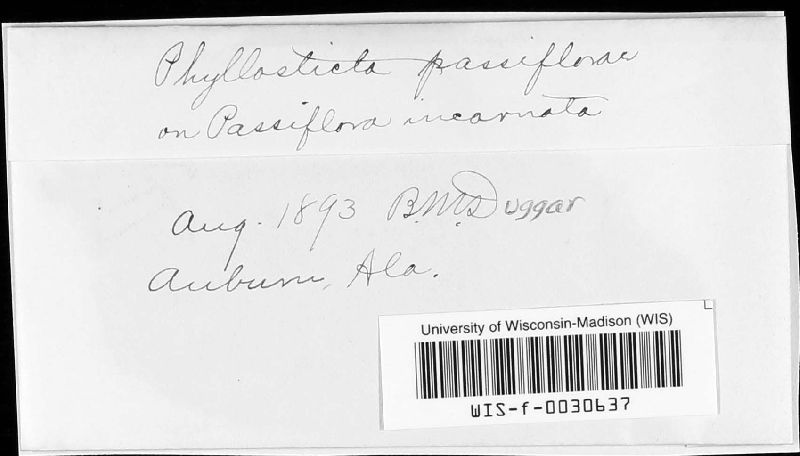 Phyllosticta passiflorae
on Passiflora incarnata
Aug. 1893 B.M. Duggar
Auburn, Ala.
University of Wisconsin-Madison (WIS)
WIS-f-0030637